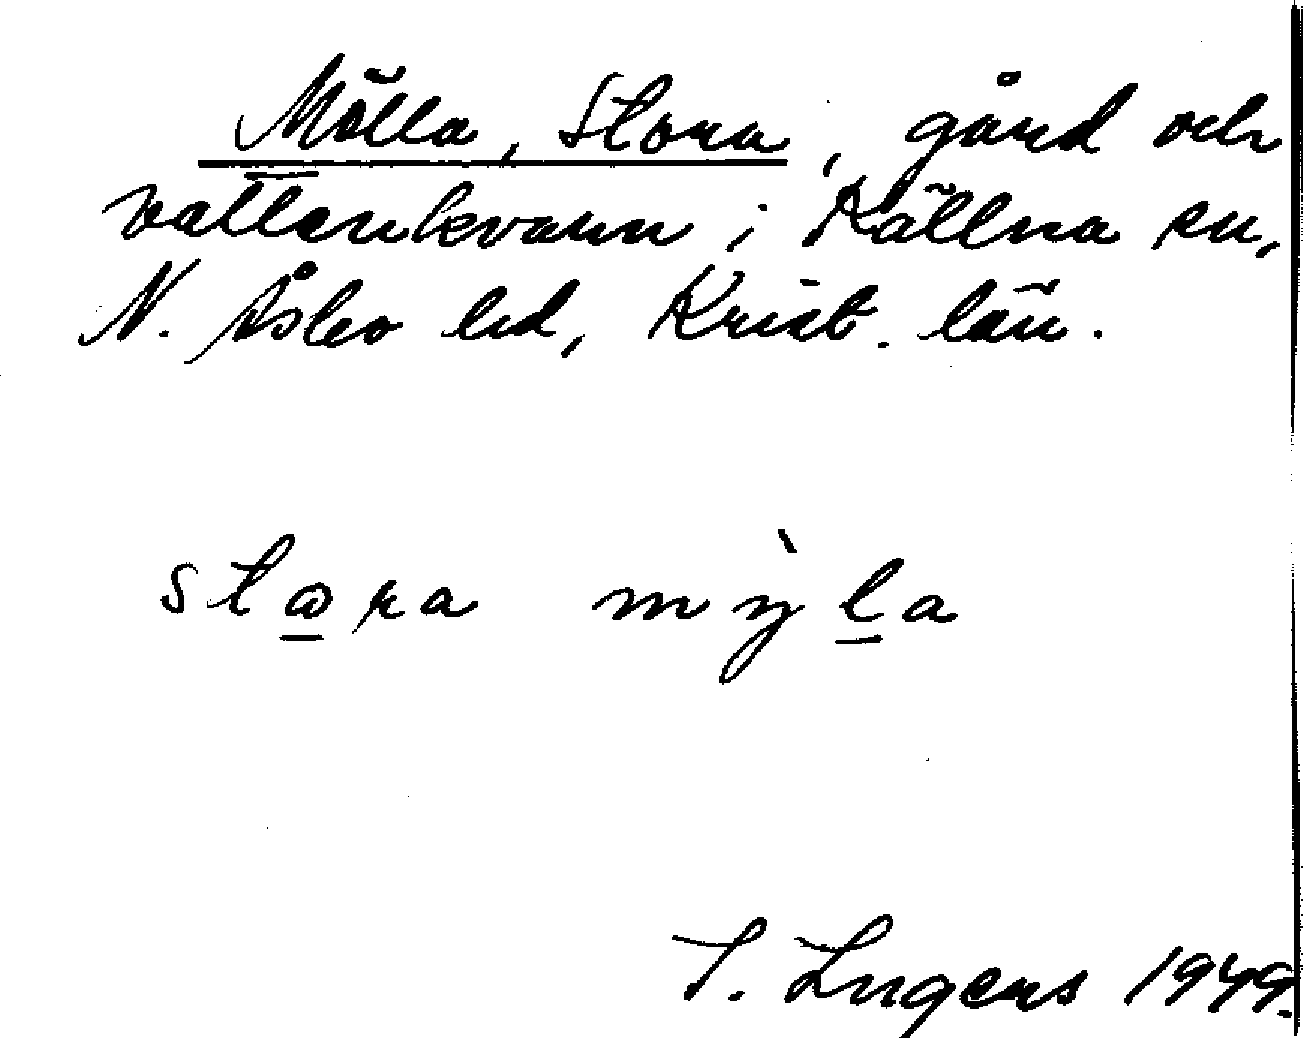 Mölla, Stora, gård och
vattenkvarn i Källna sn,
N. Åsbo hd, Krist. län.
stωra mỳla
I. Ingers 1949.